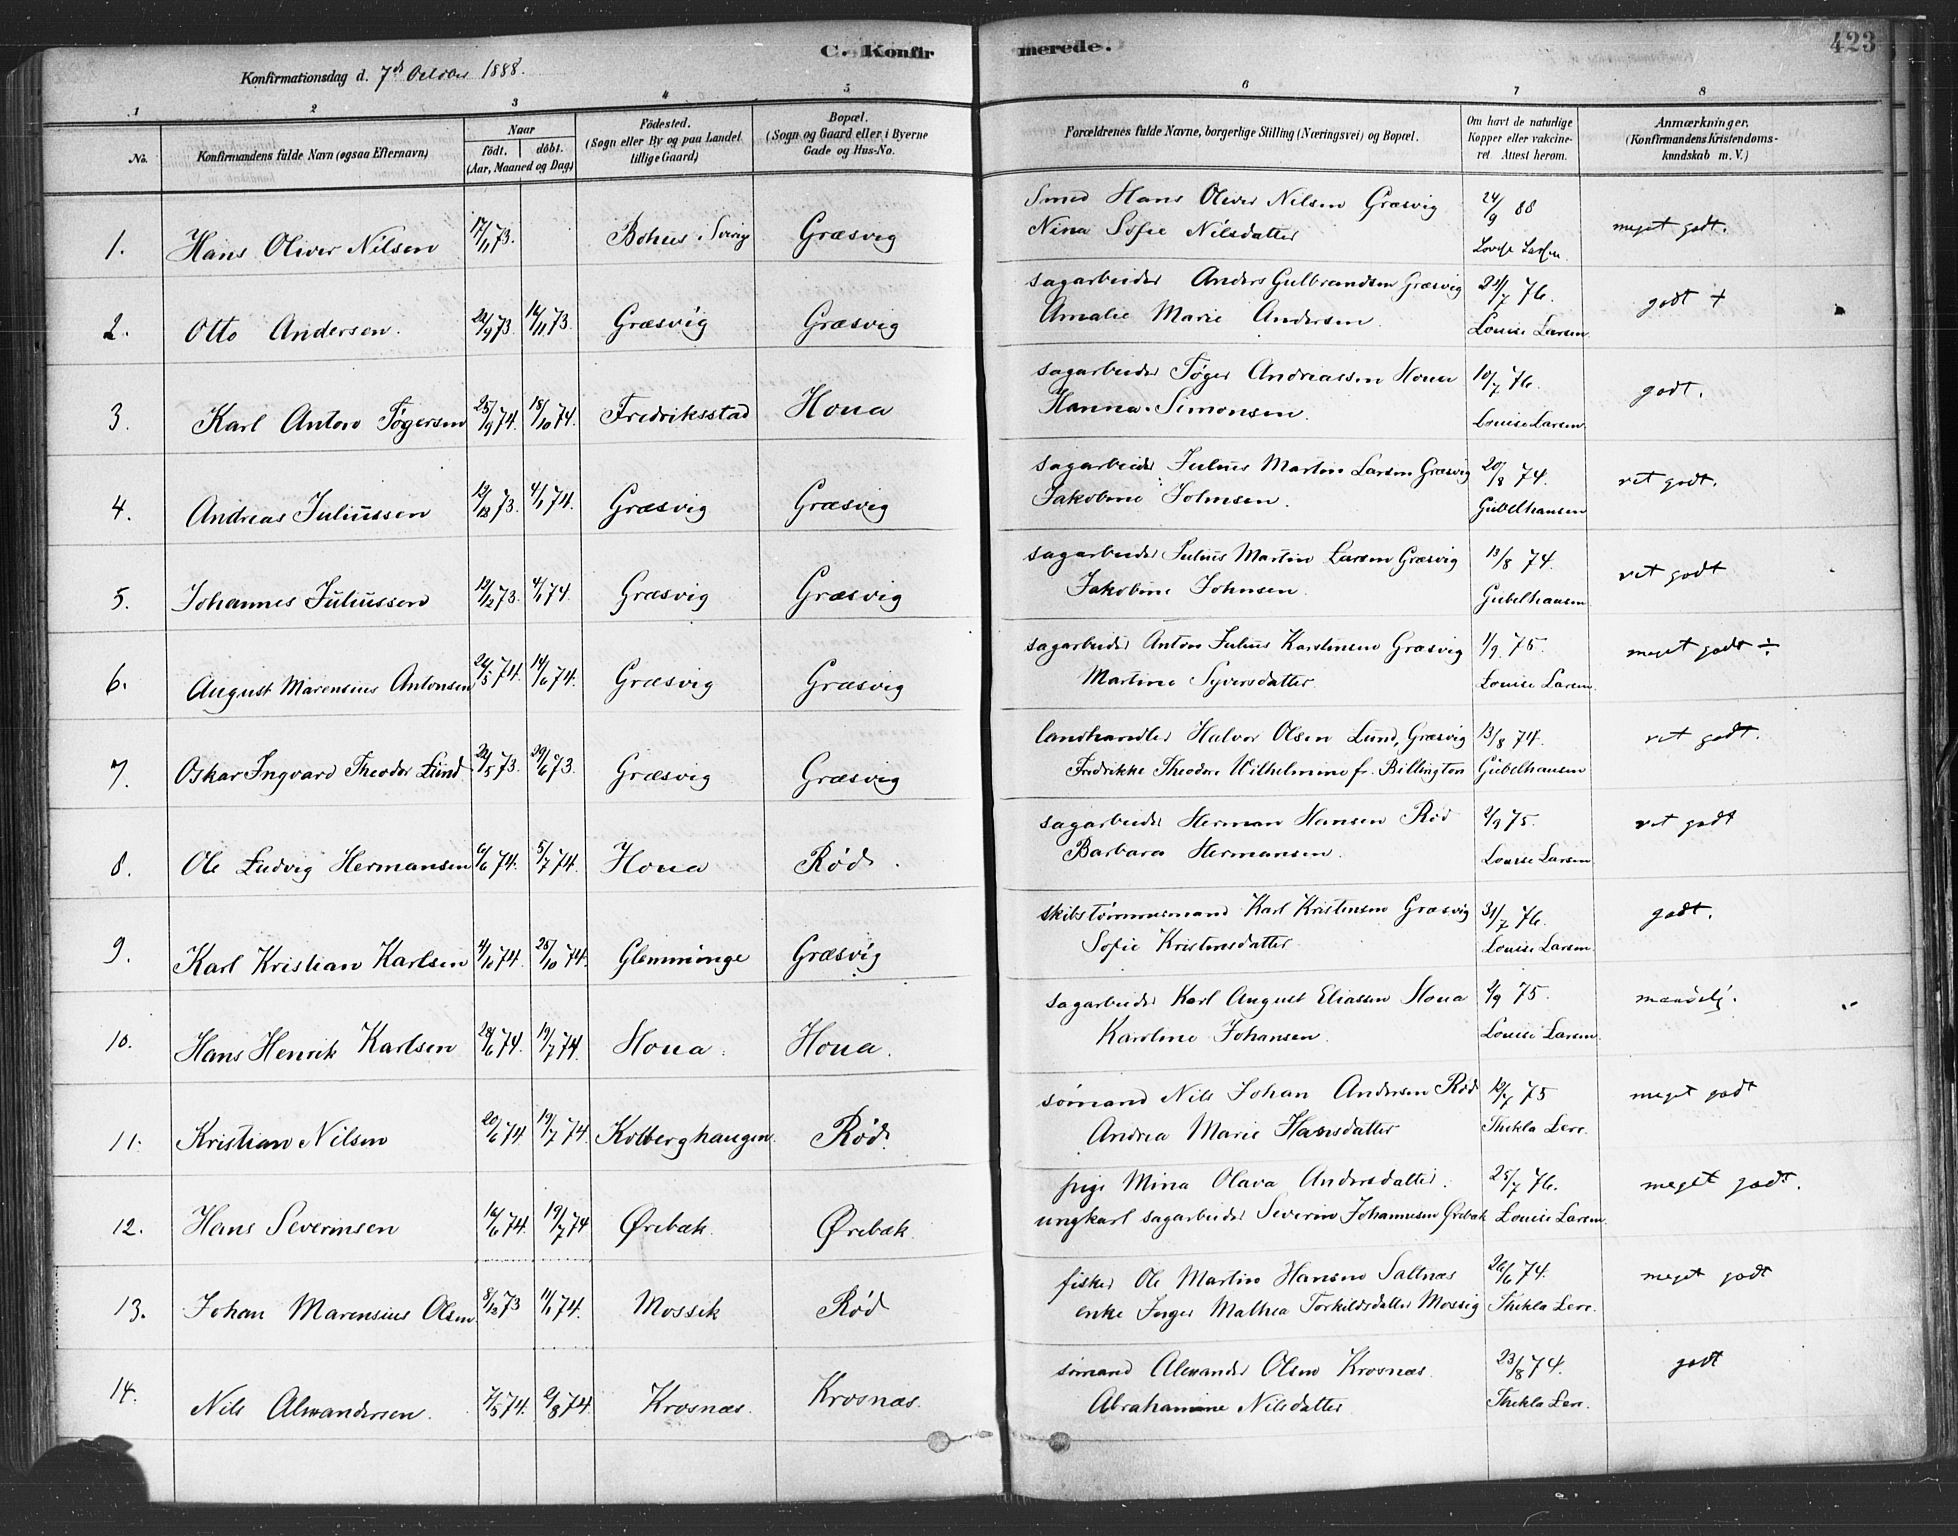 C. Konfirmerede.
423
Konfirmationsdag d. 7de October 1888.
1 2 3 4 5 6 7 8
No. Konfirmandens fulde Navn (ogsaa Efternavn) Naar födt. döbt. (Aar, Maaned og Dag) Födested. (Sogn eller By og paa Landet tillige Gaard) Bopæl. (Sogn og Gaard eller i Byerne Gade og Hus-No. Forældrenes fulde Navne, borgerlige Stilling (Næringsvei) og Bopæl. Om havt de naturlige Kopper eller vakcineret. Attest herom. Anmærkninger. (Konfirmandens Kristendomskundskab m. V.)
Smed Hans Oliver Nilsen Græsvig 24/9 88
1. Hans Oliver Nilsen 17/11 73. Bohus. Sverig Græsvig Nina Sofie Nilsdatter meget godt.
sagarbeider Anders Gulbrandsen Græsvig 76.
2. Otto Andersen. 22/9 73. 16/11 73. Græsvig Græsvig Amalie Marie Andersen. Louise Larsen godt +
sagarbeider Töger Andreassen Houa 10/7 76.
3. Karl Anton Tøgersen 25/9 74. 18/10 74. Fredriksstad Houa Hanna Simonsen. Louise Larsen godt.
sagarbeider Julius Martin Larsen Græsvig 20/8 74.
4. Andreas Juliussen 12/12 73. 4/1 74. Græsvig Græsvig Jakobine Johnsen. Gubelhausen ret godt.
sagarbeider Julius Martin Larsen Græsvig 13/8 74.
5. Johannes Juliussen 12/12 73. 4/1 74. Græsvig Græsvig Jakobine Johnsen. Gubelhausen ret godt
sagarbeider Anton Julius Karstensen Græsvig 1/9 75.
6. August Marensius Antonsen 74. 14/6 74. Græsvig Græsvig Martine Syversdatter. Louise Larsen. meget godt ÷
landhandler Halvor Olsen Lund, Græsvig 13/8 74.
7. Oskar Ingvard Theodor Lund. 22/5 73. 29/6 73. Græsvig Græsvig Fredrikke Theodore Wilhelmine f. Billington Gubelhausen ret godt.
sagarbeider Herman Hansen Rød 2/9 75.
8. Ole Ludvig Hermansen 6/6 74. 5/7 74. Houa Rød. Barbara Hermansen. Louise Larsen ret godt
skibstømmermand Karl Kristensen Græsvig 31/7 76.
9. Karl Kristian Karlsen 74. 25/10 74. Glemminge Græsvig Sofie Kristensdatter. Louise Larsen. godt.
sagarbeider Karl August Eliassen Houa 2/9 75.
10. Hans Henrik Karlsen 28/6 74. 19/7 74. Houa. Houa. Karoline Johansen. Louise Larsen. maadelig.
sømand Nils Johan Andersen Rød 12/7 75
11. Kristian Nilsen 20/6 74. 19/7 74. Kolberghaugen. Rød. Andrea Marie Hansdatter Thekla Lere. meget godt
pige Mina Olava Andersdatter. 25/7 76.
12. Hans Severinsen 16/6 74. 19/7 74 Ørebæk. Ørebæk. ungkarl sagarbeider Severin Johannesen Ørebæk Louise Larsen. meget godt.
fisker Ole Martin Hansen Saltnæs 26/6 74.
13. Johan Marensius Olsen 8/12 73 11/1 74. Mossik Rød enke Inger Mathea Torkildsdatter Mossig Thekla Lere. meget godt
sømand Alexander Olsen Krosnæs. 23/8 74.
14. Nils Alexandersen. 7/5 74. 2/8 74. Krosnæs. Krosnæs. Abrahamine Nilsdatter. Thekla Lere. godt